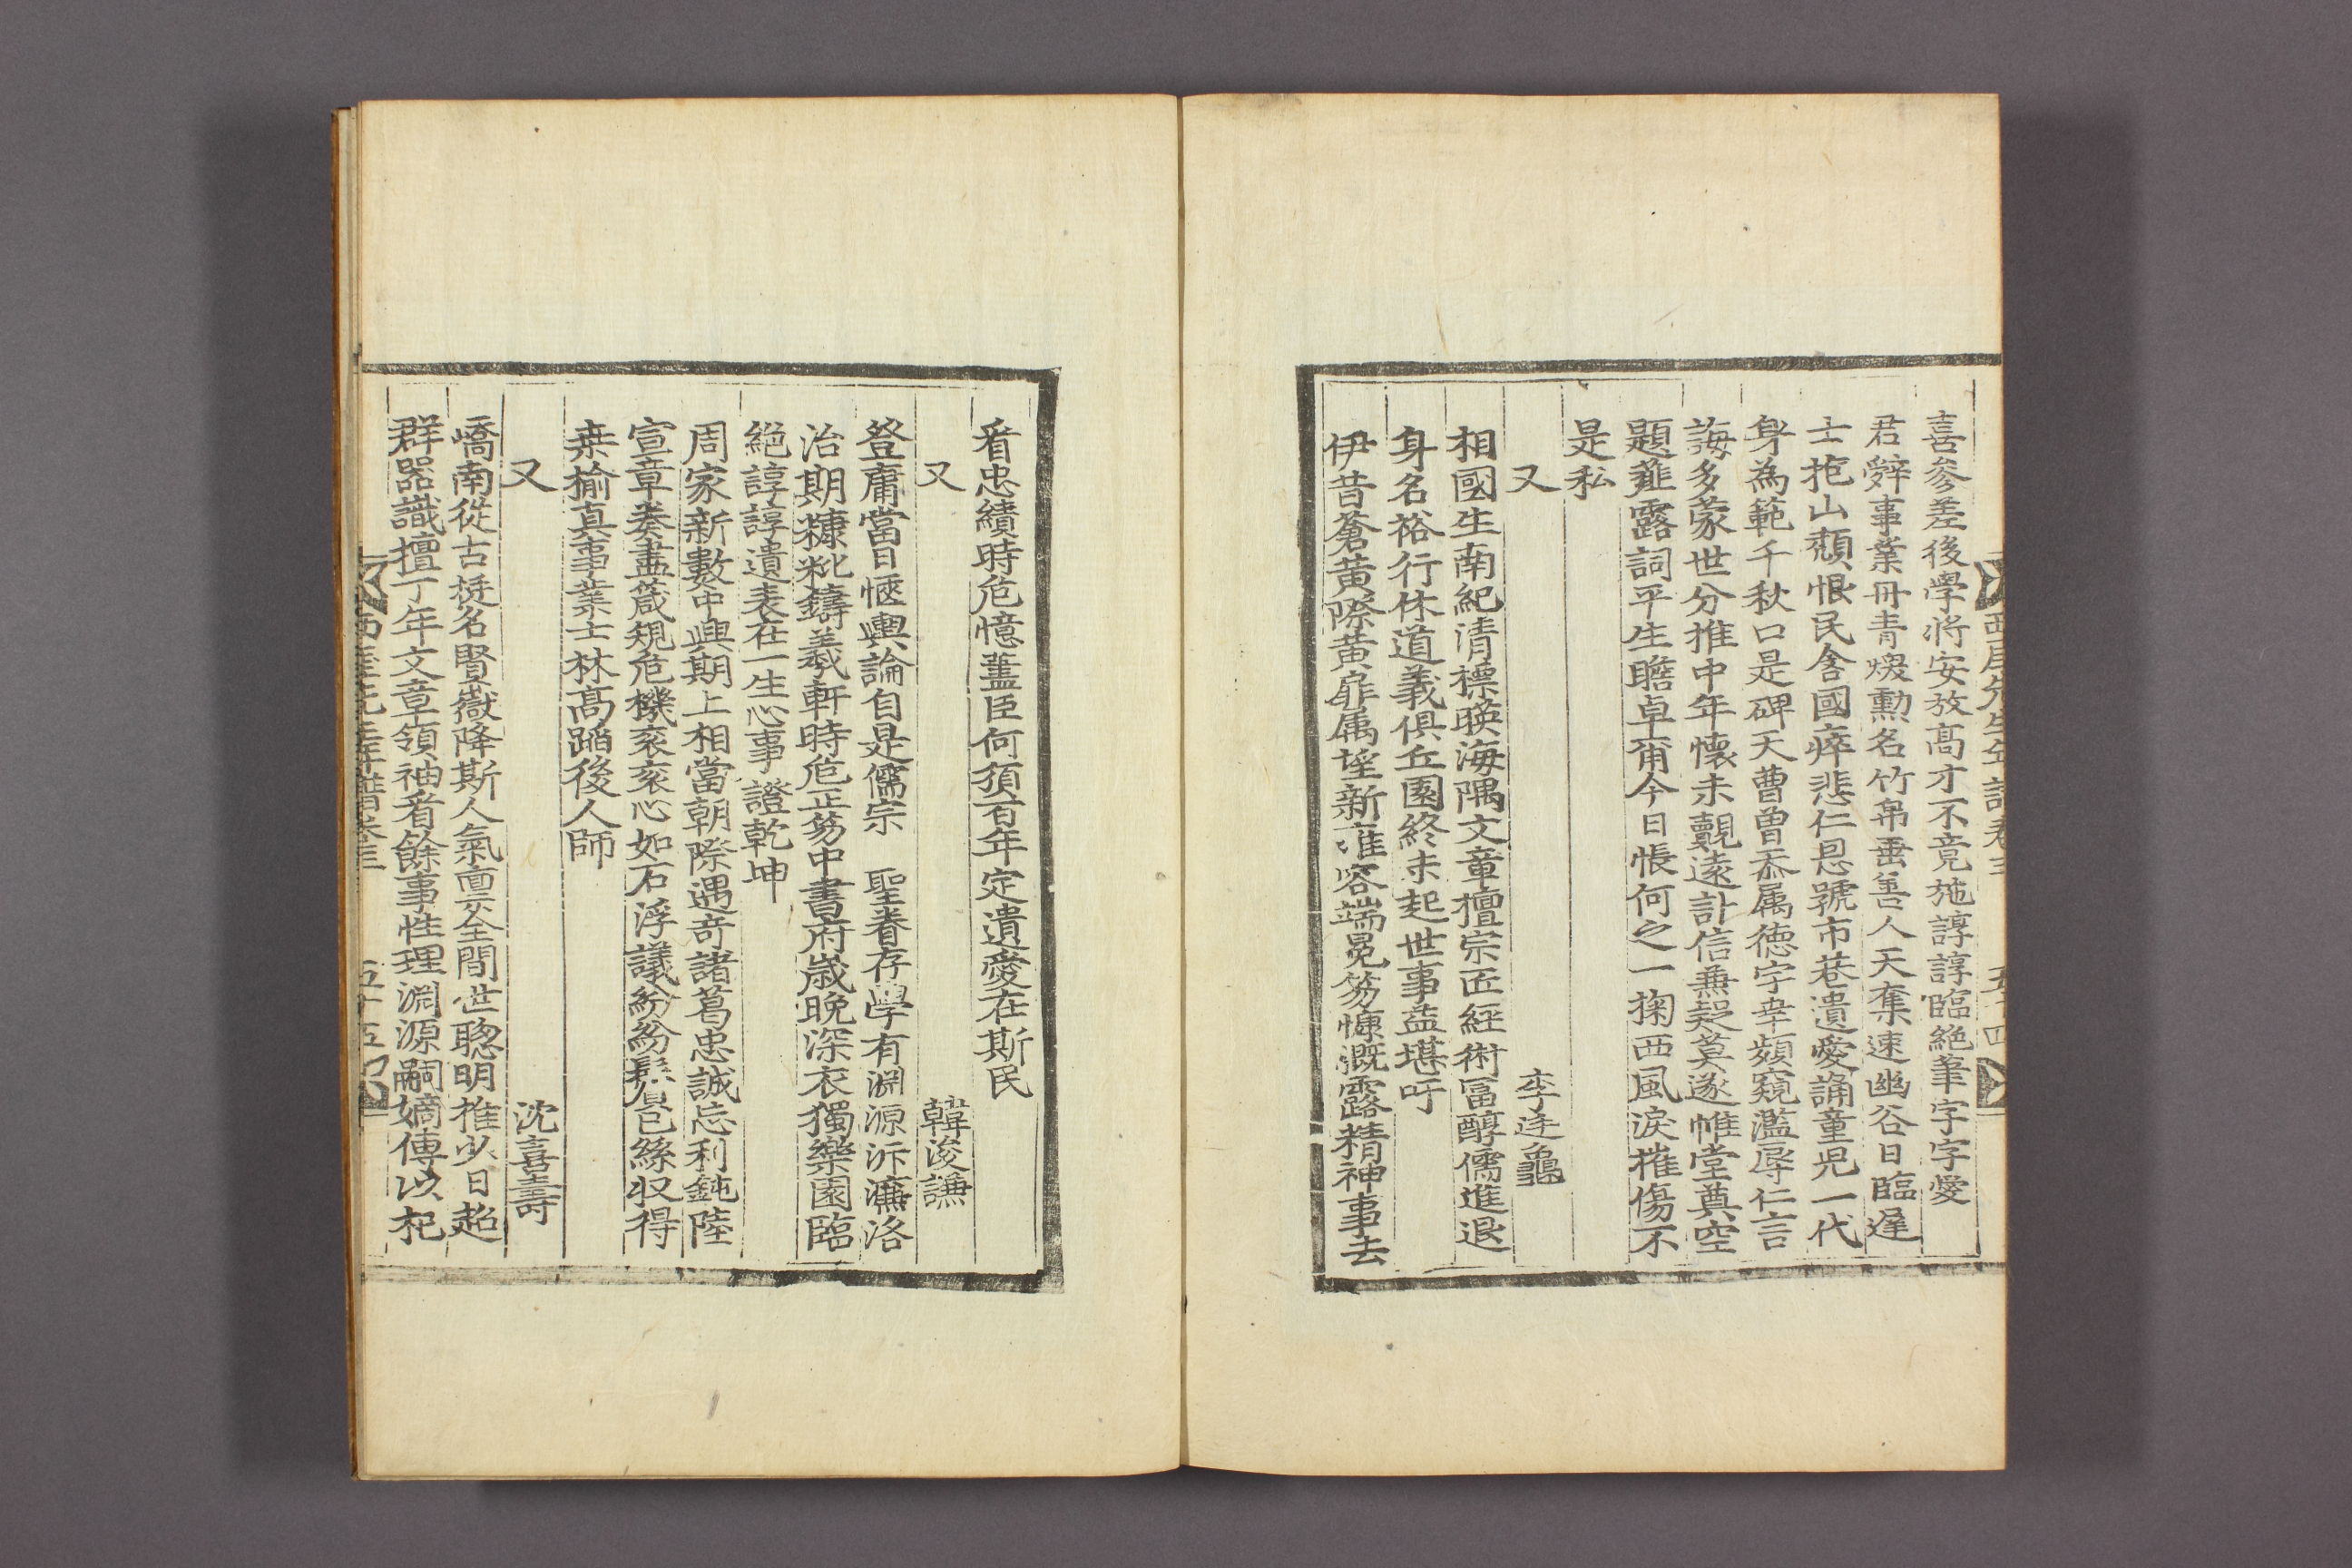 喜參差後學將安放髙才不竟施諄諄臨絕筆字字愛
君辤事業冊青煥勲名竹帛垂善人天奪速幽谷日臨遲
士抱山頹恨民含國瘁悲仁恩號市巷遺愛誦童児一代
身為範千秋口是碑天曹曾忝属德宇幸頻窺濫辱仁言
誨多蒙世分推中年懐未覿逺訃信兼疑莫遂帷堂奠空
題薤露詞平生瞻卓甭今日悵何之一掬西風淚摧傷不
是私
又 李逢龜
相國生南紀清標暎海隅文章擅宗匠經術冨醇儒進退
身名裕行休道義俱丘園終未起世事益堪吁
伊昔蒼黃際黃扉属望新雍容端冕笏慷溉露精神事去
看忠績時危憶藎臣何須百年定遺愛在斯民
又 韓浚謙
登庸當日愜輿論自是儒宗 聖眷存學有淵源泝濂洛
治期糠粃鑄羲軒時危正笏中書府歲晩深衣獨樂園臨
絕諄諄遺表在一生心事證乾坤
周家新數中興期上相當朝際遇奇諸葛忠誠忘利鈍陸
宣章奏盡箴規危機衮衮心如石浮議紛紛鬂已絲収得
桒揄真事業士林髙蹈後人師
又 沈喜壽
嶠南從古挺名賢嶽降斯人氣禀全間世聦明推少日超
群器識擅丁年文章領袖看餘事性理淵源嗣嫡傳以杞